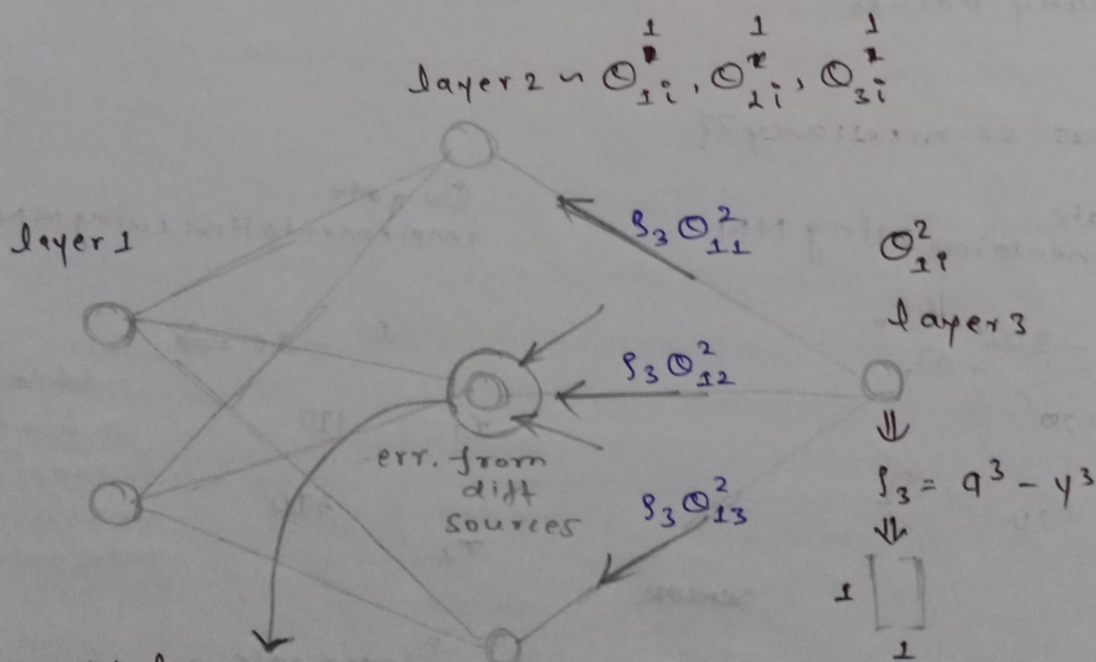 layer 2 ~ Θ¹₁ᵢ, Θ¹₂ᵢ, Θ¹₃ᵢ
layer 1
δ₃ Θ²₁₁
Θ²₁ᵢ
layer 3
δ₃ Θ²₁₂
err. from
diff
sources
δ₃ = a³ - y³
δ₃ Θ²₁₃
1
1